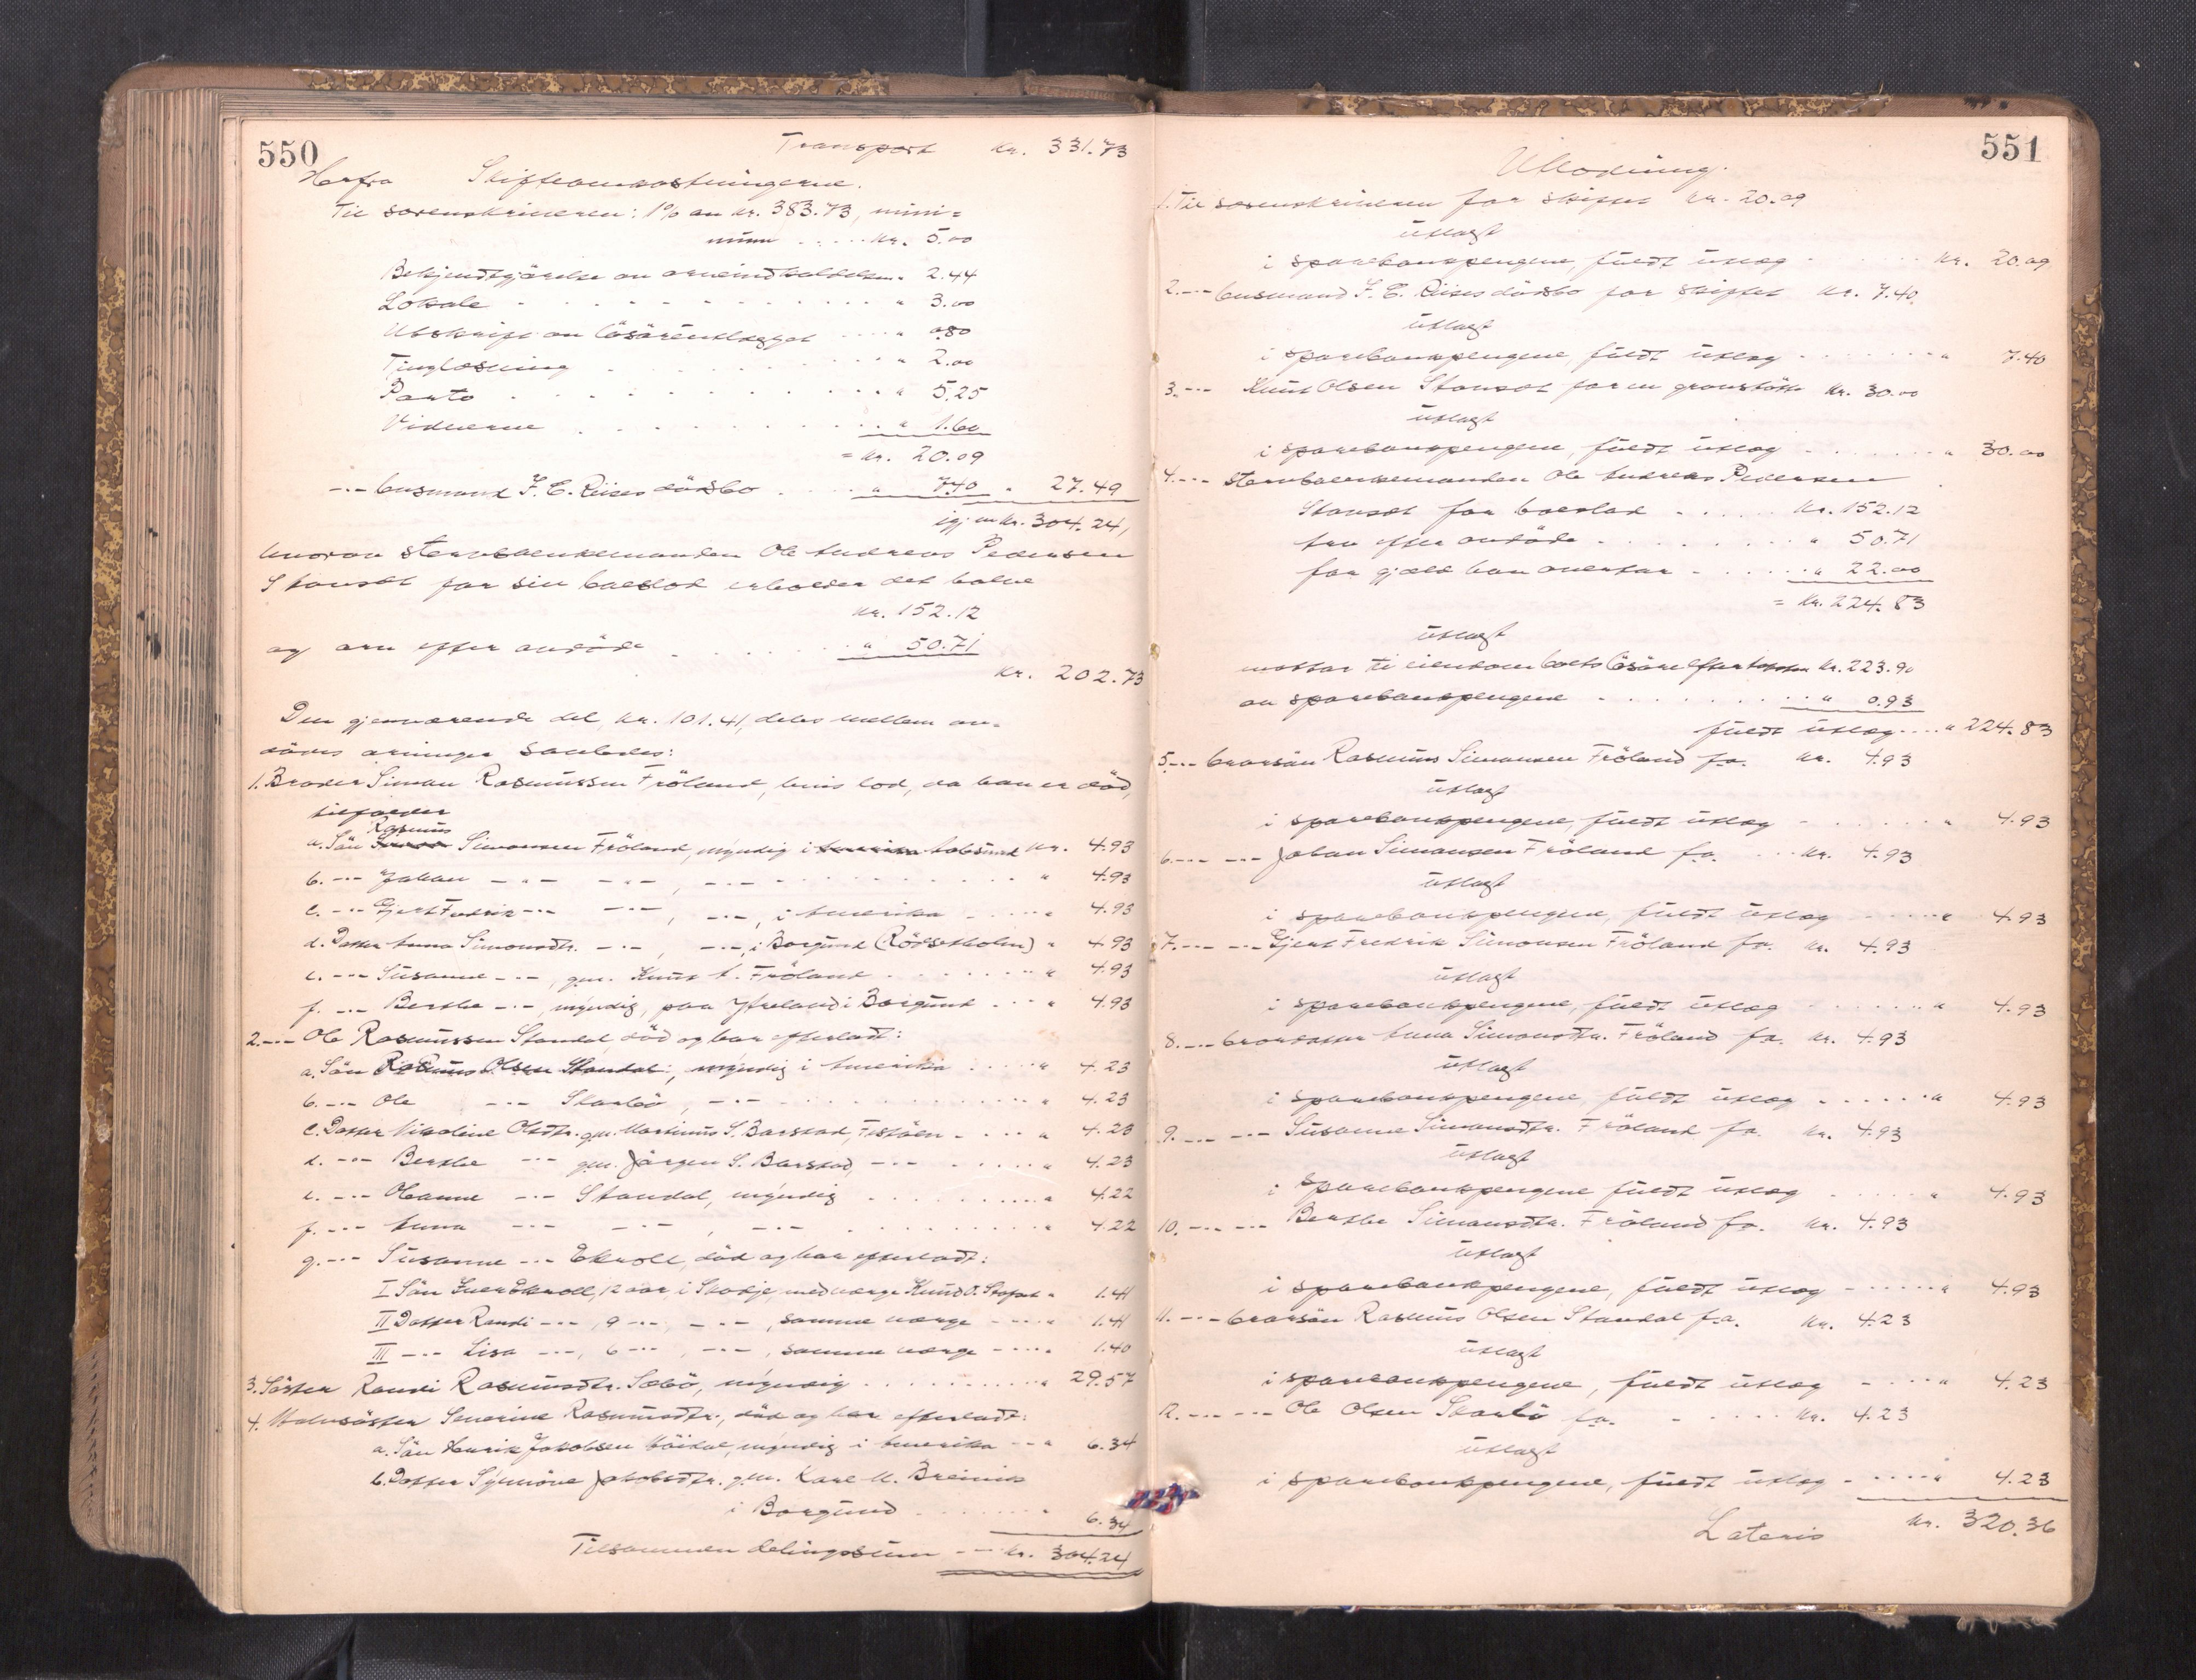 550
Transport kr. 331.73
Herfra Skifteomkostningerne.
Til sorenskriveren: 1% av kr. 383.73, mini=
mum ..... kr. 5.00
Bekjendtgjörelse av arveindkaldelsen " 2.44
Lokale " 3.00
Utskrift av lösöreutlægget " 0.80
Tinglæsning " 2.00
Porto " 5.25
Vidnerne " 1.60
= kr. 20.09
-"- lensmand F. E. Riises dödsbo " 7.40 " 27.49
igjen kr. 304.24,
hvorav stervboenkemanden Ole Andreas Pedersen
Standal for sin boeslod erholder det halve
kr. 152.12
og arv efter avdöde " 50.71
kr. 202.73
Den gjenværende del, kr. 101.41, deles mellem av-
dödes arvinger saaledes:
1. Broder Simon Rasmussen Fröland, hvis lod, da han er död,
tilfalder
Rasmus
a. Sön Simonsen Fröland, myndig i Amerika Aalesund kr. 4.93
b. -"- Johan -"- -"-, -"- " 4.93
c. -"- Gjert Fredrik -"- -"-, -"-, i Amerika " 4.93
d. Datter Anna Simonsdtr. -"-, -"-, i Borgund (Rödsetholm) " 4.93
e. -"- Susanne -"-, gm. Knut A. Fröland " 4.93
f. -"- Berthe -"-, myndig, paa Yttreland i Borgund " 4.93
2. -"- Ole Rasmussen Standal, död og har efterladt:
a. Sön Rasmus Olsen Standal, myndig i Amerika " 4.23
b. -"- Ole -"- Skarbö, -"- " 4.23
c. Datter Nikoline Olsdtr. gm. Martinus S. Barstad, Festöen " 4.23
d. -"- Berthe -"- gm. Jörgen S. Barstad, -"- " 4.23
e. -"- Olianne -"- Standal, myndig " 4.22
f. -"- Anna -"- -"-, -"- " 4.22
g. -"- Susanne -"- Ekroll, död og har efterladt:
I Sön Iver Ekroll, 12 aar, i Skodje, med værge Knud O. " 1.41
II Datter Randi -"-, 9 -"-, -"-, samme værge " 1.41
III -"- Lisa -"-, 6 -"-, -"-, samme værge " 1.40
3. Söster Randi Rasmusdtr. Sæbö, myndig " 29.57
4. Halvsöster Severine Rasmusdtr., död og har efterladt:
a. Sön Henrik Jakobsen, myndig i Amerika " 6.34
b. Datter Synnöve Jakobsdtr. gm. Karl M. Breivik
i Borgund " 6.34
Tilsammen delingssum -- kr. 304.24
551
Utlodning.
1. Til sorenskriveren for skiftet kr. 20.09
utlagt
i sparebankpengene, fuldt utlæg kr. 20.09
2. -"- lensmand F. E. Riises dödsbo for skiftet kr. 7.40
utlagt
i sparebankpengene, fuldt utlæg " 7.40
3. -"- Knut Olsen Standal for en gravstötte kr. 30.00
utlagt
i sparebankpengene, fuldt utlæg " 30.00
4. -"- stervboenkemanden Ole Andreas Pedersen
Standal for boeslod kr. 152.12
arv efter avdöde " 50.71
for gjæld han overtar " 22.00
= kr. 224.83
utlagt
mottar til eiendom boets lösöre efter taksten kr. 223.90
av sparebankpengene " 0.93
fuldt utlæg " 224.83
5. -"- brorsön Rasmus Simonsen Fröland f.a. kr. 4.93
utlagt
i sparebankpengene, fuldt utlæg " 4.93
6. -"- -"- Johan Simonsen Fröland f.a. kr. 4.93
utlagt
i sparebankpengene, fuldt utlæg " 4.93
7. -"- -"- Gjert Fredrik Simonsen Fröland f.a. kr. 4.93
utlagt
i sparebankpengene, fuldt utlæg " 4.93
8. -"- brordatter Anna Simonsdtr. Fröland f.a. kr. 4.93
utlagt
i sparebankpengene, fuldt utlæg " 4.93
9. -"- -"- Susanne Simonsdtr. Fröland f.a. kr. 4.93
utlagt
i sparebankpengene fuldt utlæg " 4.93
10. -"- -"- Berthe Simonsdtr. Fröland f.a. kr. 4.93
utlagt
i sparebankpengene, fuldt utlæg " 4.93
11. -"- brorsön Rasmus Olsen Standal f.a. kr. 4.23
utlagt
i sparebankpengene, fuldt utlæg " 4.23
12. -"- -"- Ole Olsen Skarbö f.a. kr. 4.23
utlagt
i sparebankpengene, fuldt utlæg " 4.23
Lateris kr. 320.36